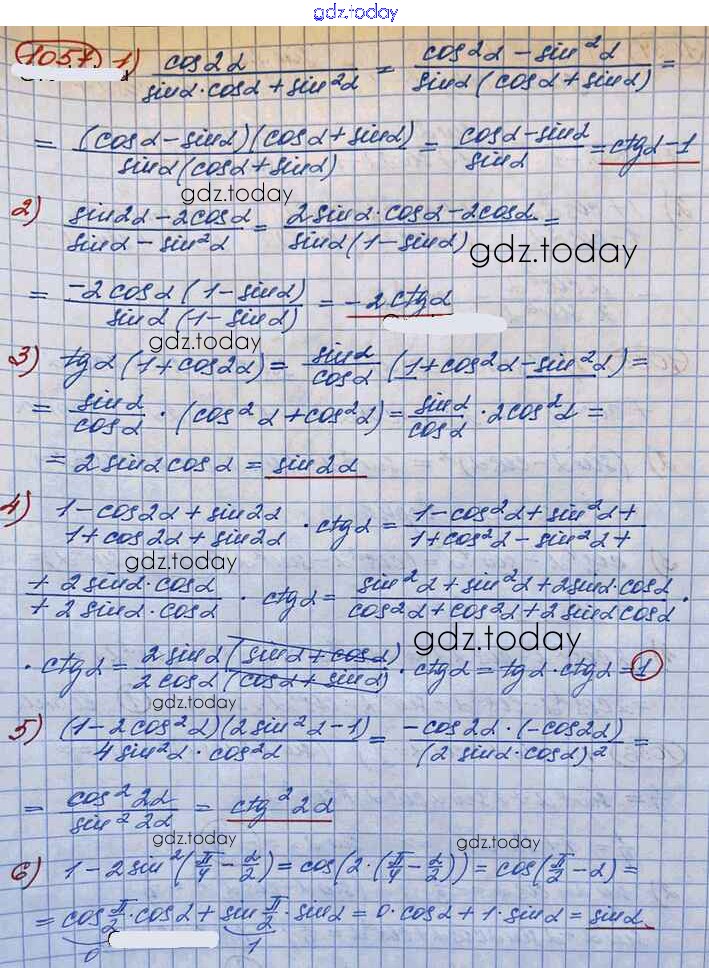 gdz.today
1057 1) cos2α / (sinα·cosα + sin²α) = (cos²α − sin²α) / (sinα(cosα + sinα)) =
= (cosα − sinα)(cosα + sinα) / (sinα(cosα + sinα)) = (cosα − sinα) / sinα = ctgα − 1
gdz.today
2) (sin2α − 2cosα) / (sinα − sin²α) = (2sinα·cosα − 2cosα) / (sinα(1 − sinα)) =
gdz.today
= −2cosα(1 − sinα) / (sinα(1 − sinα)) = −2ctgα
gdz.today
3) tgα(1 + cos2α) = sinα/cosα (1 + cos²α − sin²α) =
= sinα/cosα · (cos²α + cos²α) = sinα/cosα · 2cos²α =
= 2sinαcosα = sin2α
4) (1 − cos2α + sin2α) / (1 + cos2α + sin2α) · ctgα = (1 − cos²α + sin²α + / 1 + cos²α − sin²α +
gdz.today
+ 2sinα·cosα / + 2sinα·cosα) · ctgα = (sin²α + sin²α + 2sinα·cosα) / (cos²α + cos²α + 2sinαcosα) ·
gdz.today
· ctgα = 2sinα(sinα + cosα) / (2cosα(cosα + sinα)) · ctgα = tgα·ctgα = 1
gdz.today
5) (1 − 2cos²α)(2sin²α − 1) / (4sin²α·cos²α) = −cos2α·(−cos2α) / (2sinα·cosα)² =
= cos²2α / sin²2α = ctg²2α
gdz.today
gdz.today
6) 1 − 2sin²(π/4 − α/2) = cos(2·(π/4 − α/2)) = cos(π/2 − α) =
= cos π/2 · cosα + sin π/2 · sinα = 0·cosα + 1·sinα = sinα
0 1